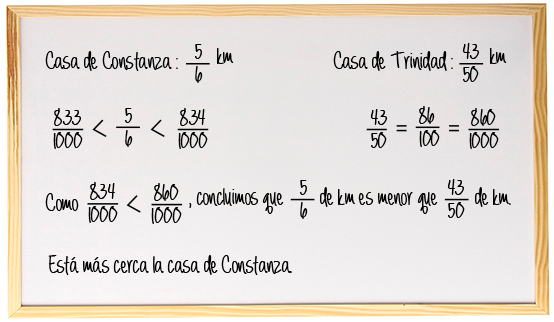 Casa de Constanza: 5/6 km    Casa de Trinidad: 43/50 km
833/1000 < 5/6 < 834/1000    43/50 = 86/100 = 860/1000
Como 834/1000 < 860/1000, concluimos que 5/6 de km es menor que 43/50 de km.
Está más cerca la casa de Constanza.